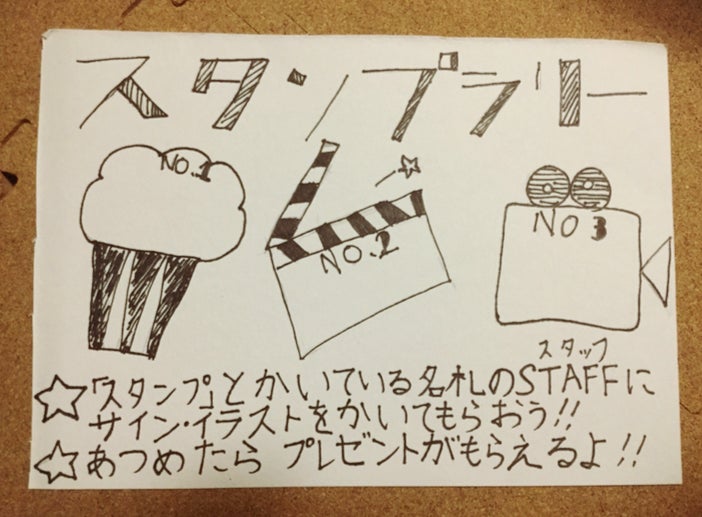 スタンプラリー
NO.1
NO.2
NO 3
スタッフ
☆「スタンプ」とかいている名札のSTAFFに
サイン・イラストをかいてもらおう!!
☆あつめたら プレゼントがもらえるよ!!